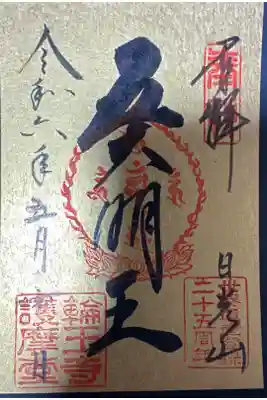 奉拝
日光山
五大明王
令和六年五月
輪王寺
護摩堂
二十五周年